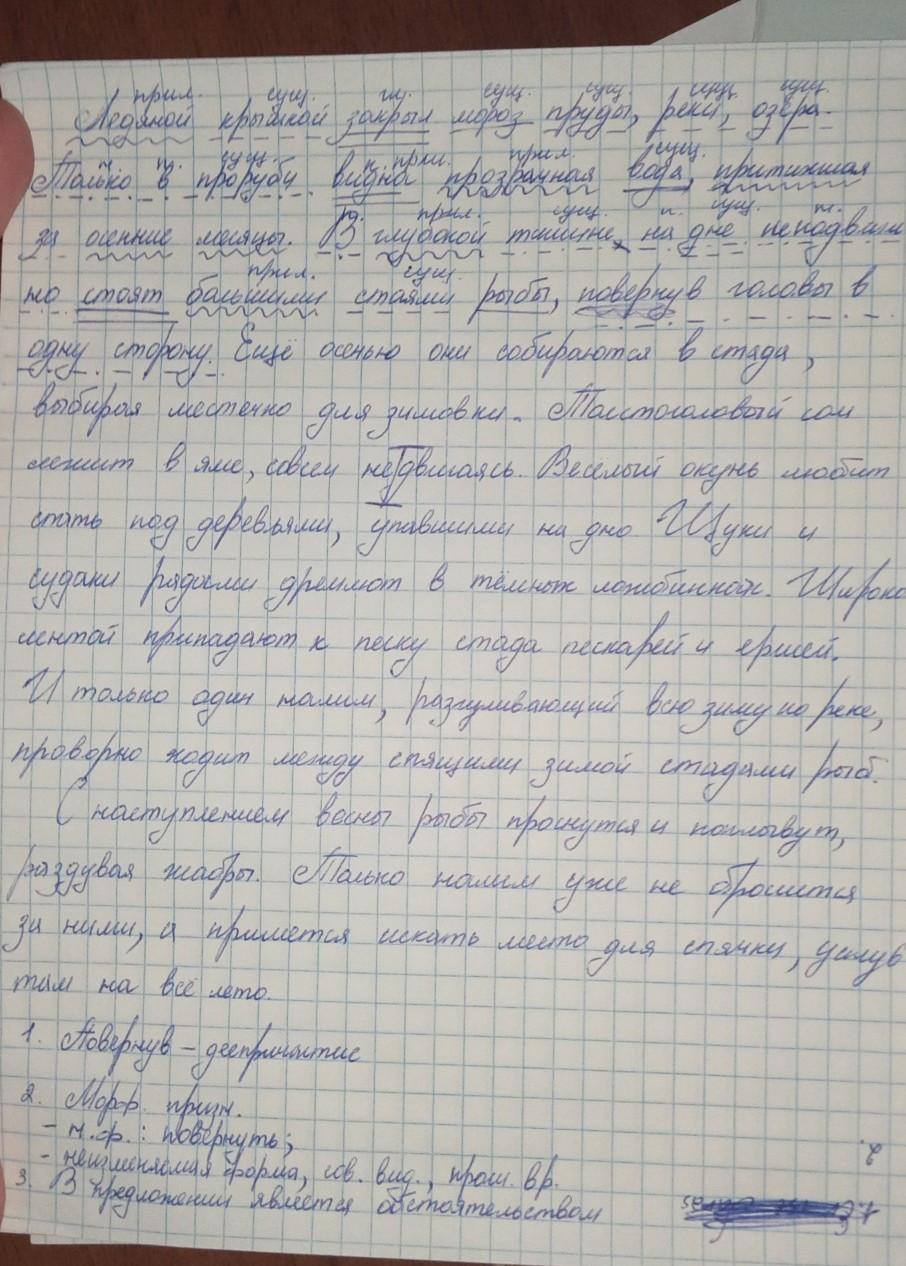 прил. сущ. гл. сущ. сущ. сущ. сущ.
Ледяной крышкой закрыл мороз пруды, реки, озёра.
н. п. сущ. к. прил. прил. сущ.
Только в проруби видна прозрачная вода, притихшая
п. прил. сущ. п. сущ. н.
за осенние месяцы. В глубокой тишине, на дне неподвиж
прил. сущ.
но стоят большими стаями рыбы, повернув головы в
одну сторону. Ещё осенью они собираются в стада,
выбирая местечко для зимовки. Толстоголовый сом
лежит в яме, совсем не двигаясь. Весёлый окунь любит
спать под деревьями, упавшими на дно. Щуки и
судаки рядами дремлют в тёмных ложбинках. Широко
лентой припадают к песку стада пескарей и ершей.
И только один налим, разгуливающий всю зиму по реке,
проворно ходит между спящими зимой стадами рыб.
С наступлением весны рыбы проснутся и поплывут,
раздувая жабры. Только налим уже не бросится
за ними, а примется искать место для спячки, уснув
там на всё лето.
1. Повернув – деепричастие
2. Морф. призн.
- н.ф.: повернуть;
- неизменяемая форма, сов. вид., прош. вр.
3. В предложении является обстоятельством
2.